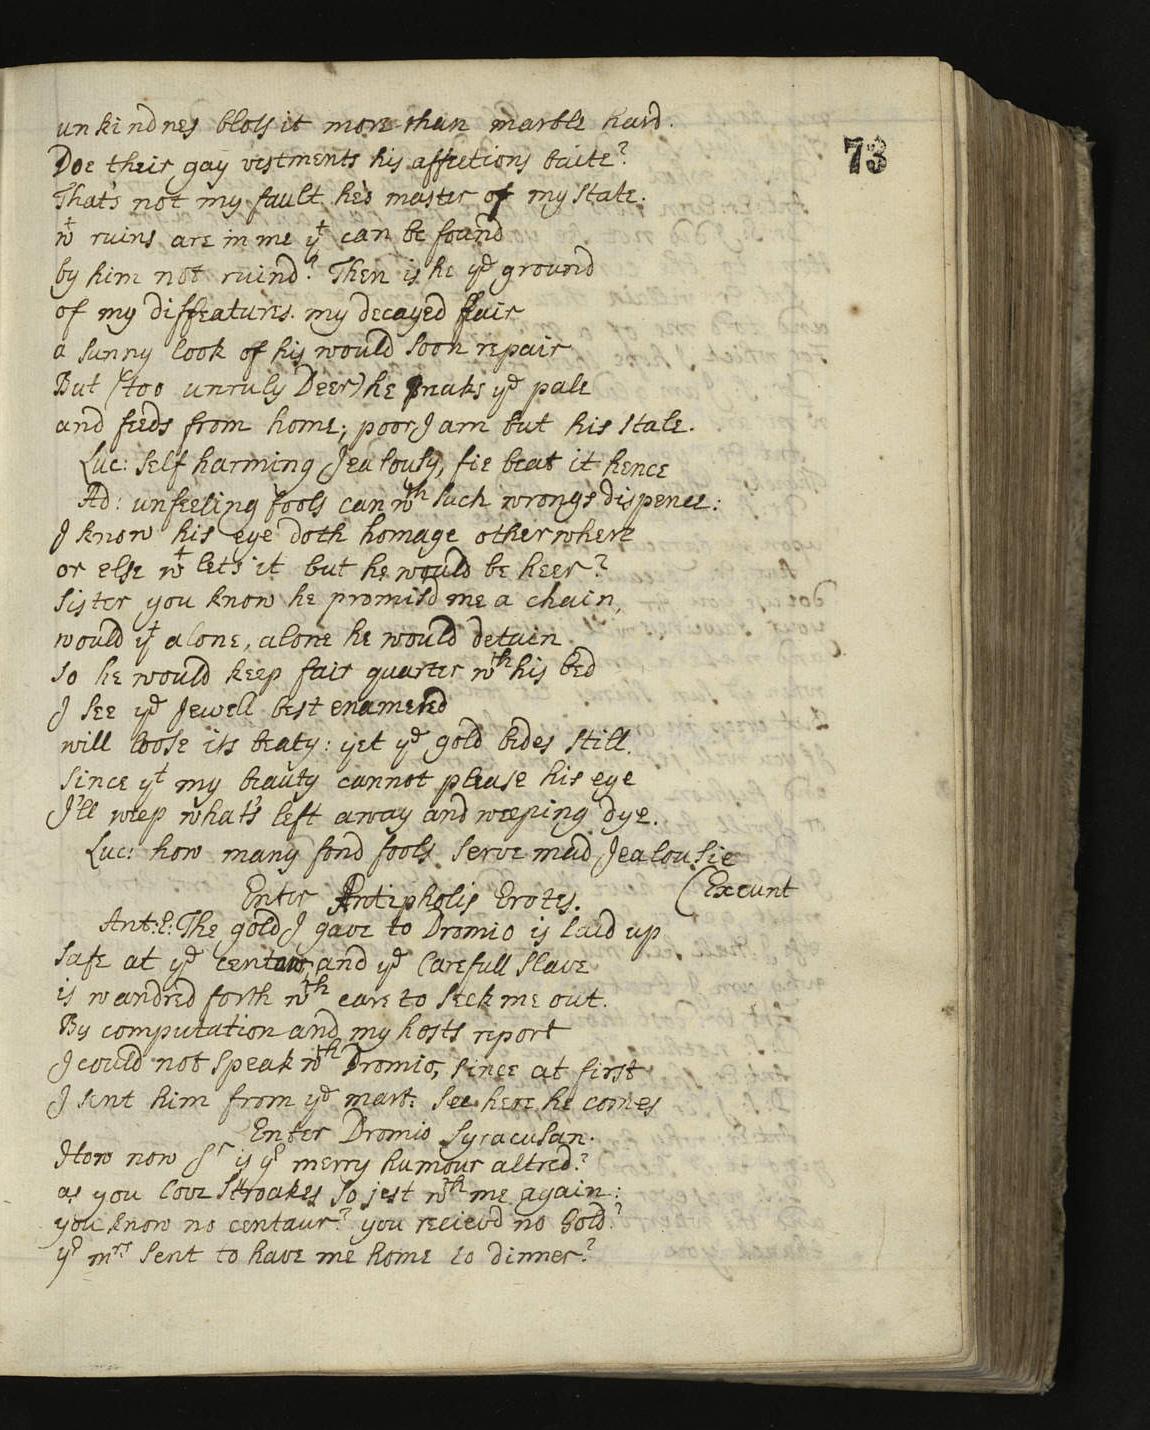 73
unkindnes blots it more than marble hard.
Doe their gay vestments his affections baite?
That's not my fault, he's master of my state.
wt ruins are in me yt can be found
by him not ruind? Then is he ye ground
of my diffeatures. my decayed fair
a sunny look of his would soon repair
But (too unruly Deer) he breaks ye pale
and feeds from home; poor I am but his stale.
Luc: Self harming Jealousy, fie beat it hence
Ad: unfeeling fools can wth such wrongs dispence:
I know his eye doth homage otherwhere
or else wt let's it but he would be heer?
Sister you know he promis'd me a chain,
would yt alone, alone he would detain
so he would keep fair quarter wth his bed
I see ye Jewell best enameled
will loose its beaty: yet ye gold bides still.
since yt my beauty cannot please his eye
I'll weep what's left away and weeping dye.
Luc: how many fond fools serve mad Jealousie
(Exeunt
Enter Antipholis Erotes.
Ant:E: The gold I gave to Dromio is laid up
safe at ye centaur, and ye Carefull slave
is wandred forth wth care to seek me out.
By computation and my hosts report
I could not speak wth Dromio, since at first
I sent him from ye mart: See here he comes
Enter Dromio Syracusan.
How now Sr is yr merry humour altred?
as you love Stroakes so jest wth me again:
you know no centaur? you recievd no Gold?
yr mrs sent to have me home to dinner?